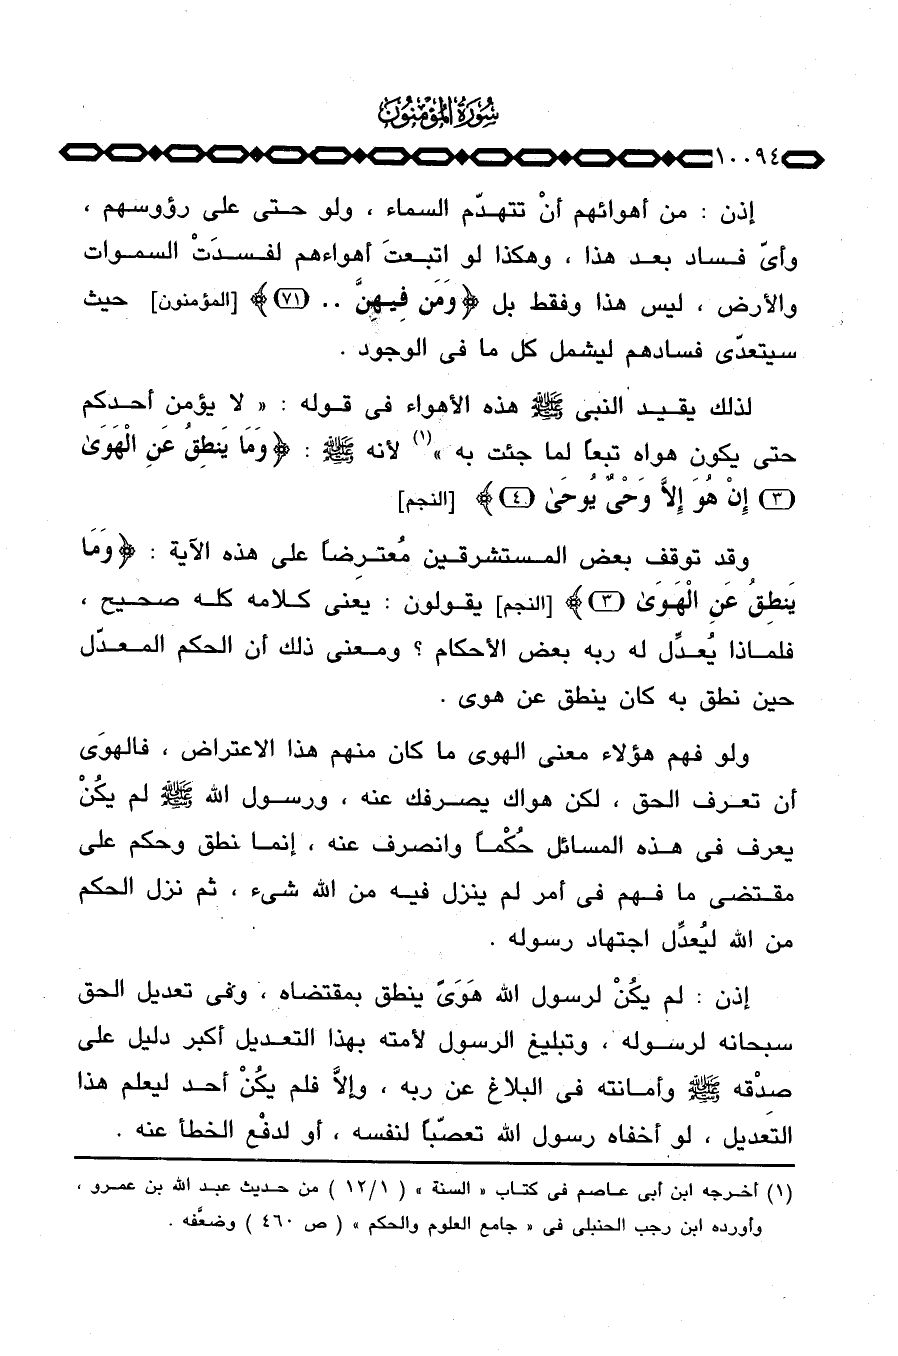 سُورَةُ المُؤْمِنُونَ
١٠٠٩٤
إذن : من أهوائهم أنْ تتهدّم السماء ، ولو حتى على رؤوسهم ،
وأىّ فساد بعد هذا ، وهكذا لو اتبعتَ أهواءهم لفسدَتْ السموات
والأرض ، ليس هذا وفقط بل ﴿ وَمَن فِيهِنَّ .. (٧١) ﴾ [المؤمنون] حيث
سيتعدّى فسادهم ليشمل كل ما فى الوجود .
لذلك يقيد النبى ﷺ هذه الأهواء فى قوله : « لا يؤمن أحدكم
حتى يكون هواه تبعاً لما جئت به »(١) لأنه ﷺ : ﴿ وَمَا يَنطِقُ عَنِ الْهَوَىٰ
(٣) إِنْ هُوَ إِلاَّ وَحْىٌ يُوحَىٰ (٤) ﴾ [النجم]
وقد توقف بعض المستشرقين مُعترِضاً على هذه الآية : ﴿ وَمَا
يَنطِقُ عَنِ الْهَوَىٰ (٣) ﴾ [النجم] يقولون : يعنى كلامه كله صحيح ،
فلماذا يُعدِّل له ربه بعض الأحكام ؟ ومعنى ذلك أن الحكم المعدّل
حين نطق به كان ينطق عن هوى .
ولو فهم هؤلاء معنى الهوى ما كان منهم هذا الاعتراض ، فالهوَى
أن تعرف الحق ، لكن هواك يصرفك عنه ، ورسول الله ﷺ لم يكُنْ
يعرف فى هذه المسائل حُكْماً وانصرف عنه ، إنما نطق وحكم على
مقتضى ما فهم فى أمر لم ينزل فيه من الله شىء ، ثم نزل الحكم
من الله ليُعدِّل اجتهاد رسوله .
إذن : لم يكُنْ لرسول الله هَوَىً ينطق بمقتضاه ، وفى تعديل الحق
سبحانه لرسوله ، وتبليغ الرسول لأمته بهذا التعديل أكبر دليل على
صِدْقه ﷺ وأمانته فى البلاغ عن ربه ، وإلاَّ فلم يكُنْ أحد ليعلم هذا
التعديل ، لو أخفاه رسول الله تعصّباً لنفسه ، أو لدفْع الخطأ عنه .
(١) أخرجه ابن أبى عاصم فى كتاب « السنة » ( ١٢/١ ) من حديث عبد الله بن عمرو ،
وأورده ابن رجب الحنبلى فى « جامع العلوم والحكم » ( ص ٤٦٠ ) وضعَّفه .